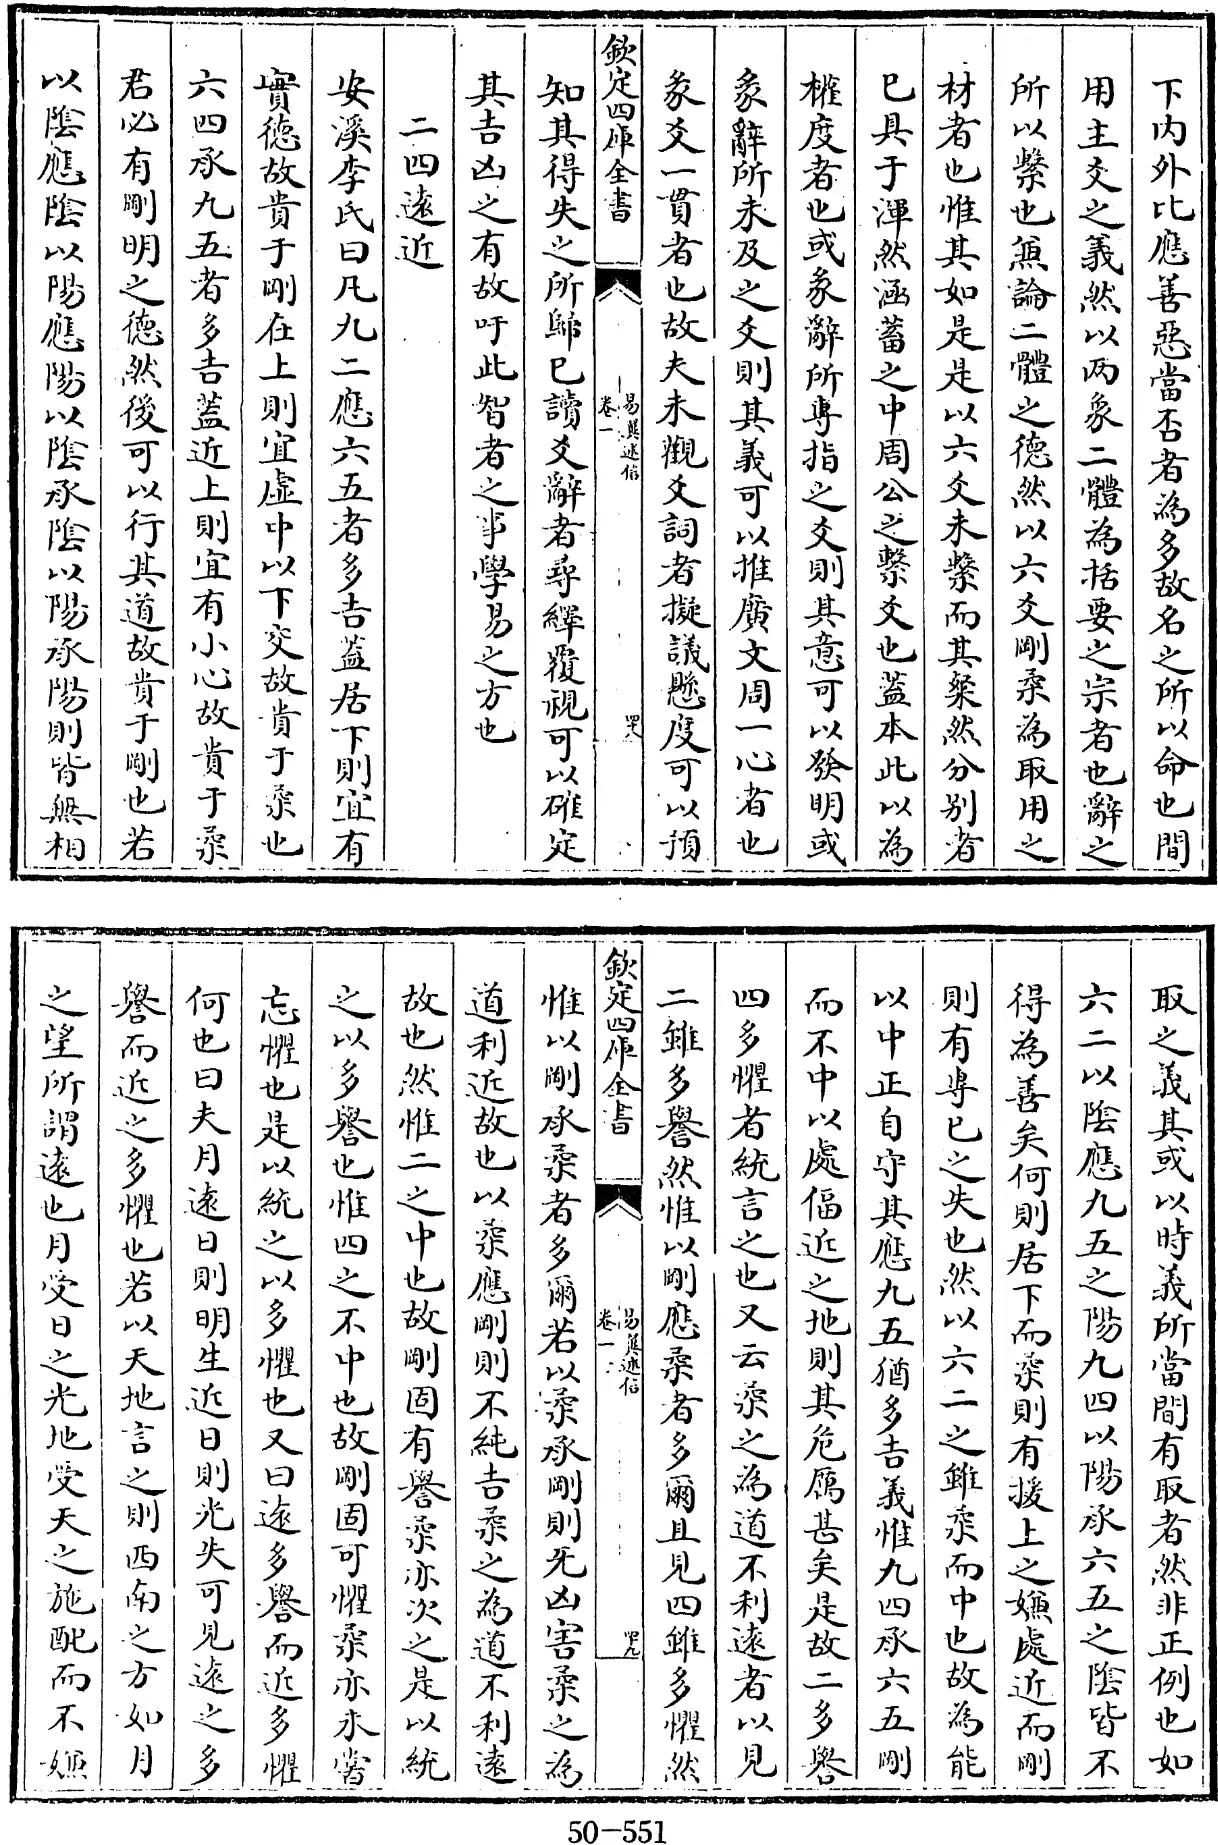 下内外比應善惡當否者為多故名之所以命也間
用主爻之義然以兩象二體為括要之宗者也辭之
所以繫也無論二體之德然以六爻剛柔為取用之
材者也惟其如是是以六爻未繫而其粲然分别者
已具于渾然涵蓄之中周公之繫爻也蓋本此以為
權度者也或彖辭所專指之爻則其意可以發明或
彖辭所未及之爻則其義可以推廣文周一心者也
彖爻一貫者也故夫未觀爻詞者擬議懸度可以預
欽定四庫全書
易翼述信
卷一
四八
知其得失之所歸已讀爻辭者尋繹覆視可以確定
其吉凶之有故吁此智者之事學易之方也
二四遠近
安溪李氏曰凡九二應六五者多吉蓋居下則宜有
實德故貴于剛在上則宜虛中以下交故貴于柔也
六四承九五者多吉蓋近上則宜有小心故貴于柔
君必有剛明之德然後可以行其道故貴于剛也若
以陰應陰以陽應陽以陰承陰以陽承陽則皆無相
取之義其或以時義所當間有取者然非正例也如
六二以陰應九五之陽九四以陽承六五之陰皆不
得為善矣何則居下而柔則有援上之嫌處近而剛
則有專已之失也然以六二之雖柔而中也故為能
以中正自守其應九五猶多吉義惟九四承六五剛
而不中以處偪近之地則其危厲甚矣是故二多譽
四多懼者統言之也又云柔之為道不利遠者以見
二雖多譽然惟以剛應柔者多爾且見四雖多懼然
欽定四庫全書
易翼述信
卷一
四九
惟以剛承柔者多爾若以柔承剛則旡凶害柔之為
道利近故也以柔應剛則不純吉柔之為道不利遠
故也然惟二之中也故剛固有譽柔亦次之是以統
之以多譽也惟四之不中也故剛固可懼柔亦未嘗
忘懼也是以統之以多懼也又曰遠多譽而近多懼
何也曰夫月遠日則明生近日則光失可見遠之多
譽而近之多懼也若以天地言之則西南之方如月
之望所謂遠也月受日之光地受天之施配而不嫌
50-551